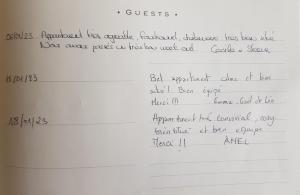 • GUESTS •
08/01/23 Appartement très agréable, fonctionnel, chaleureux très bien situé
Nous avons passés un très bon week end.
15/01/23 Bel appartement chic et bien
situé ! Bien équipé
Merci !!!
18/01/23 Appartement très convivial, cosy
bien situé et bien équipé
Merci !! ANEL